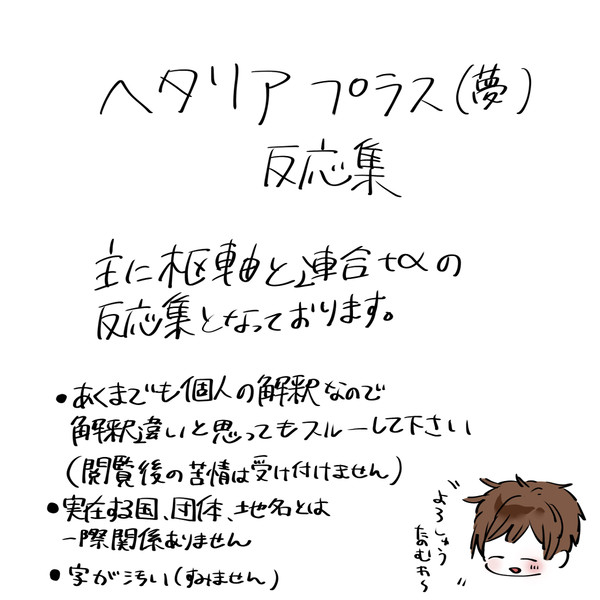 ヘタリア プラス(夢)
反応集
主に枢軸と連合+αの
反応集となっております。
•あくまでも個人の解釈なので
解釈違いと思ってもスルーして下さい
(閲覧後の苦情は受け付けません)
•実在する国、団体、地名とは
一際関係ありません
•字が汚い(すみません)
"よろしゅう
たのむわ〜"